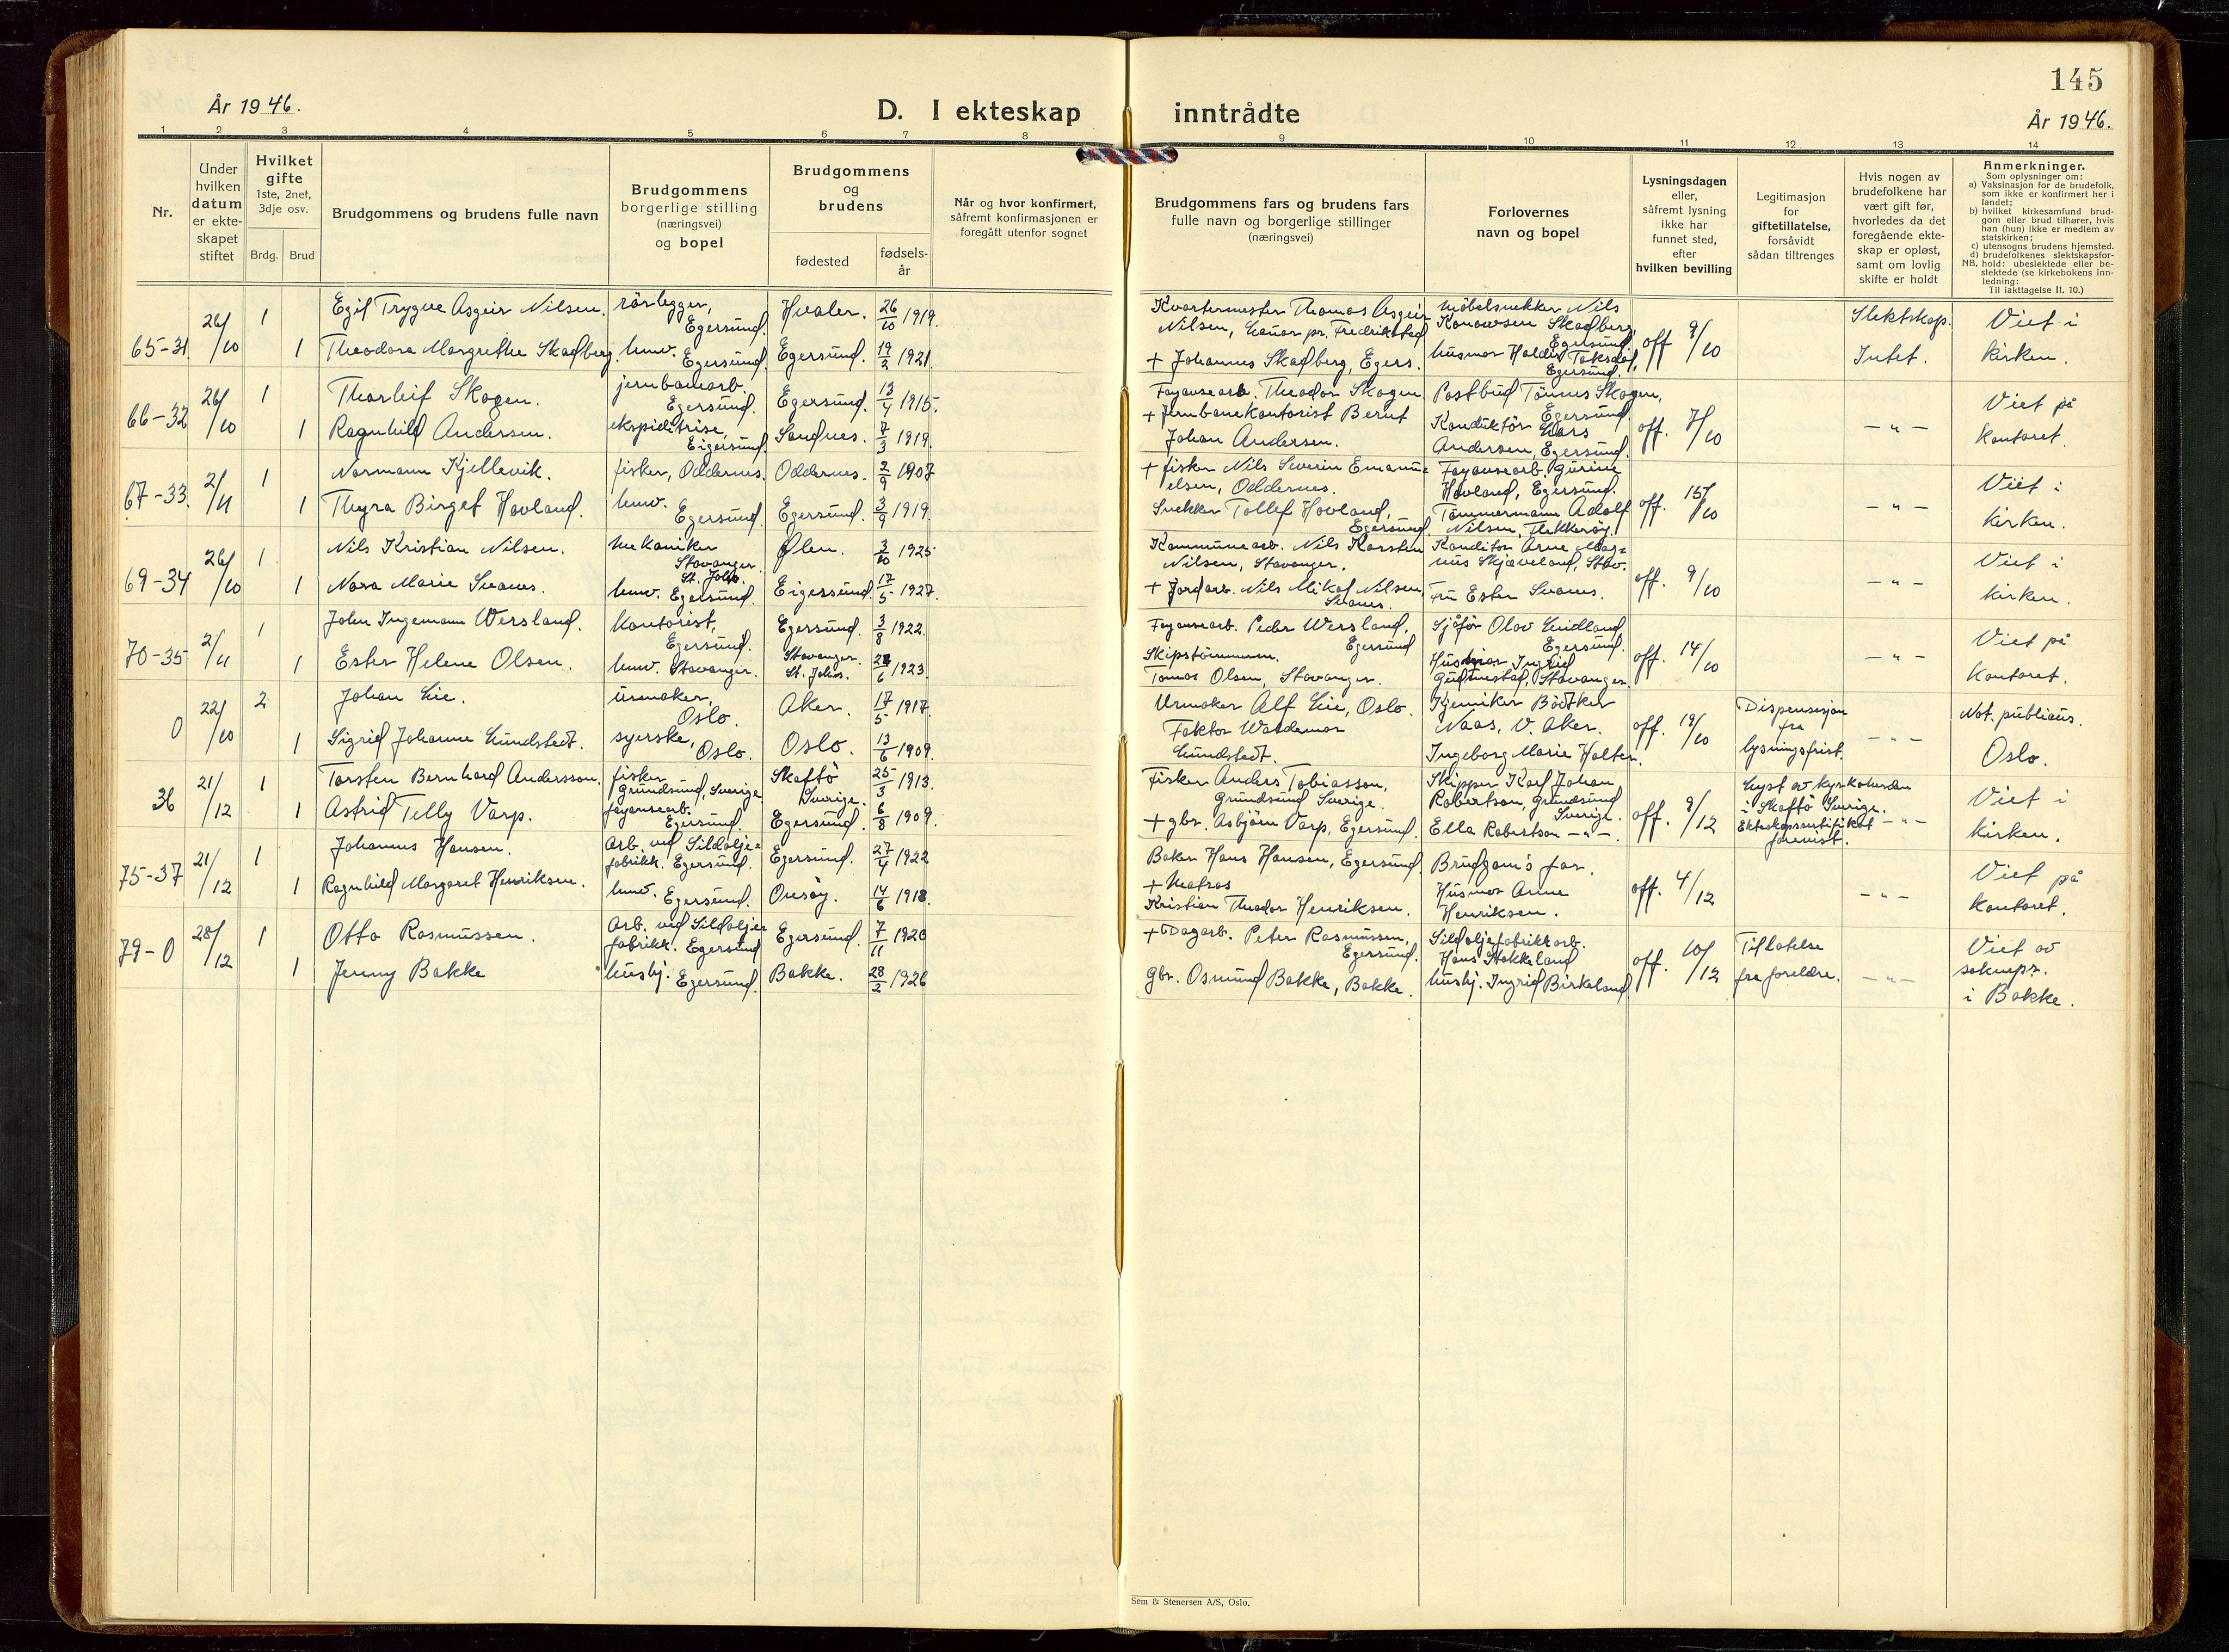 145
År 1946.
D. I ekteskap inntrådte
År 1946.
1 2 3 4 5 6 7 8 9 10 11 12 13 14
Nr.
Under
hvilken
datum
er ekte-
skapet
stiftet
Hvilket
gifte
1ste, 2net,
3dje osv.
Brdg. Brud
Brudgommens og brudens fulle navn
Brudgommens
borgerlige stilling
(næringsvei)
og bopel
Brudgommens
og
brudens
fødested
fødsels-
år
Når og hvor konfirmert,
såfremt konfirmasjonen er
foregått utenfor sognet
Brudgommens fars og brudens fars
fulle navn og borgerlige stillinger
(næringsvei)
Forlovernes
navn og bopel
Lysningsdagen
eller,
såfremt lysning
ikke har
funnet sted,
efter
hvilken bevilling
Legitimasjon
for
giftetillatelse,
forsåvidt
sådan tiltrenges
Hvis nogen av
brudefolkene har
vært gift før,
hvorledes da det
foregående ekte-
skap er opløst,
samt om lovlig
skifte er holdt
Anmerkninger.
Som oplysninger om:
a) Vaksinasjon for de brudefolk,
som ikke er konfirmert her i
landet;
b) hvilket kirkesamfund brud-
gom eller brud tilhører, hvis
han (hun) ikke er medlem av
statskirken;
c) utensogns brudens hjemsted.
d) brudefolkenes slektskapsfor-
NB. hold: ubeslektede eller be-
slektede (se kirkebokens inn-
ledning:
Til iakttagelse II. 10.)
65-31 26/10 1 Egil Trygve Asgeir Nilsen. rörlegger, Egersund. Hvaler. 26/10 1919.
1 Theodora Margrethe Skadberg. hmv. Egersund. Egersund. 19/2 1921.
Kvartermester Thomas Asgeir
Nilsen, Lauar pr. Fredrikstad
+ Johannes Skadberg, Egers.
Möbelsnekker Nils
Skadberg, Egersund
husmor Haldis Taksdal, Egersund.
off 9/10
Slektskap.
Intet.
Viet i
kirken.
66-32 26/10 1 Thorleif Skogen. jernbanearb. Egersund. Egersund. 13/4 1915.
1 Ragnhild Andersen. ekspiditrise, Eigersund. Sandnes. 7/3 1919.
Fayansearb. Theodor Skogen.
+ Jernbanekontorist Bernt
Johan Andersen.
Postbud Tönnes Skogen,
Egersund.
Konduktör Lars
Andersen, Egersund.
off. 7/10
-"-
Viet på
kontoret.
67-33. 2/11 1 Normann Kjellevik. fisker, Oddernes. Oddernes. 2/9 1907
1 Thyra Birget Hovland. hmv. Egersund. Egersund. 3/9 1919.
+ fisker Nils Severin Emanu-
elsen, Oddernes.
Snekker Tollef Hovland,
Egersund
Fayansearb. Gurine
Hovland, Egersund.
Tömmermann Adolf
Nilsen, Flekkeröy.
off. 15/10
-"-
Viet i
kirken.
69-34 26/10 1 Nils Kristian Nilsen. Mekaniker Stavanger. St. Joh. Ølen. 3/10 1925
1 Nora Marie Svanes. hmv. Egersund. Eigersund. 17/5 1927.
Kommunearb. Nils Karsten
Nilsen, Stavanger.
+ Jordarb. Nils Mikal Nilsen
Svanes.
Konditor Arne Mag-
nus Skjæveland, Stav.
Fru Ester Svanes.
off. 9/10
-"-
Viet i
kirken.
70-35 2/11 1 John Ingemann Wersland. Kontorist, Egersund. Egersund. 3/8 1922.
1 Ester Helene Olsen. hmv. Stavanger. Stavanger. St. Johs. 6 1923.
Fayansearb. Peder Wersland,
Egersund
Skipstömmerm.
Tomas Olsen, Stavanger.
Sjåför Olav Lindland
Egersund.
Husmor Ingrid
Gudmestad, Stavanger.
off. 14/10
-"-
Viet på
Kontoret.
0 22/10 2 Johan Lie. urmaker, Oslo. Aker. 17/5 1917.
1 Sigrid Johanne Lundstedt. syerske, Oslo. Oslo. 13/6 1909.
Urmaker Alf Lie, Oslo.
Faktor Waldemar
Lundstedt.
Kjemiker Bödtker
Naas, V. Aker.
Ingeborg Marie Holter.
off. 19/10
Dispensasjon
fra
lysningsfrist.
-"-
Not. publicus.
Oslo.
36 21/12 1 Torsten Bernhard Andersson. fisker Grundsund, Sverige Skaftö Sverige. 25/3 1913.
1 Astrid Telly Varp. fayansearb. Egersund. Egersund. 6/8 1909.
Fisker Anders Tobiasson,
Grundsund Sverige.
+ gbr. Asbjörn Varp, Egersund.
Skipper Karl Johan
Robertson, Grundsund
Sverige.
Ella Robertson -"-
off. 9/12
Lyst av kyrkoherden
i Skaftö Sverige.
Ekteskapssertifikat
forevist.
-"-
Viet i
kirken.
75-37 21/12 1 Johannes Hansen. Arb. ved Sildolje-
fabrikk. Egersund. Egersund. 27/4 1922
1 Ragnhild Margaret Henriksen. hmv. Egersund. Onsöy. 14/6 1918.
Baker Hans Hansen, Egersund.
+ Matros
Kristian Theodor Henriksen.
Brudgom's far.
Husmor Anne
Henriksen.
off. 4/12
-"-
Viet på
kontoret.
79-0 28/12 1 Otto Rasmussen. Arb. ved Sildolje-
fabrikk. Egersund Egersund. 7/11 1920
1 Jenny Bakke hushj. Egersund. Bakke. 28/2 1926
+ Dagarb. Peter Rasmussen,
Egersund.
gbr. Osmund Bakke, Bakke.
Sildoljefabrikkarb.
Hans Stokkeland
hushj. Ingrid Birkeland.
off. 10/12
Tillatelse
fra foreldre.
-"-
Viet av
soknepr.
i Bakke.
Sem & Stenersen A/S, Oslo.